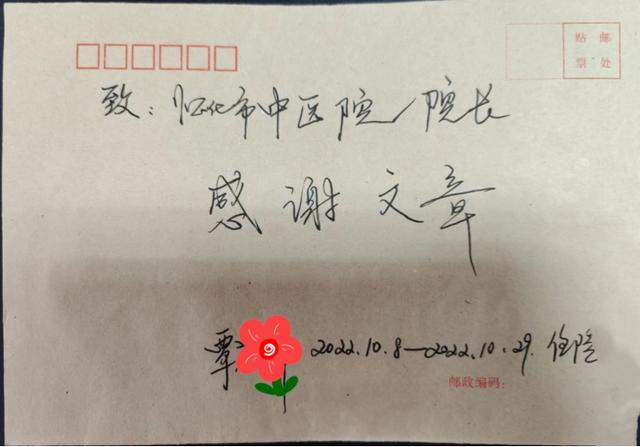 贴邮
票处
致：怀化市中医院院长
感谢文章
覃 2022.10.8—2022.10.29.住院
邮政编码：